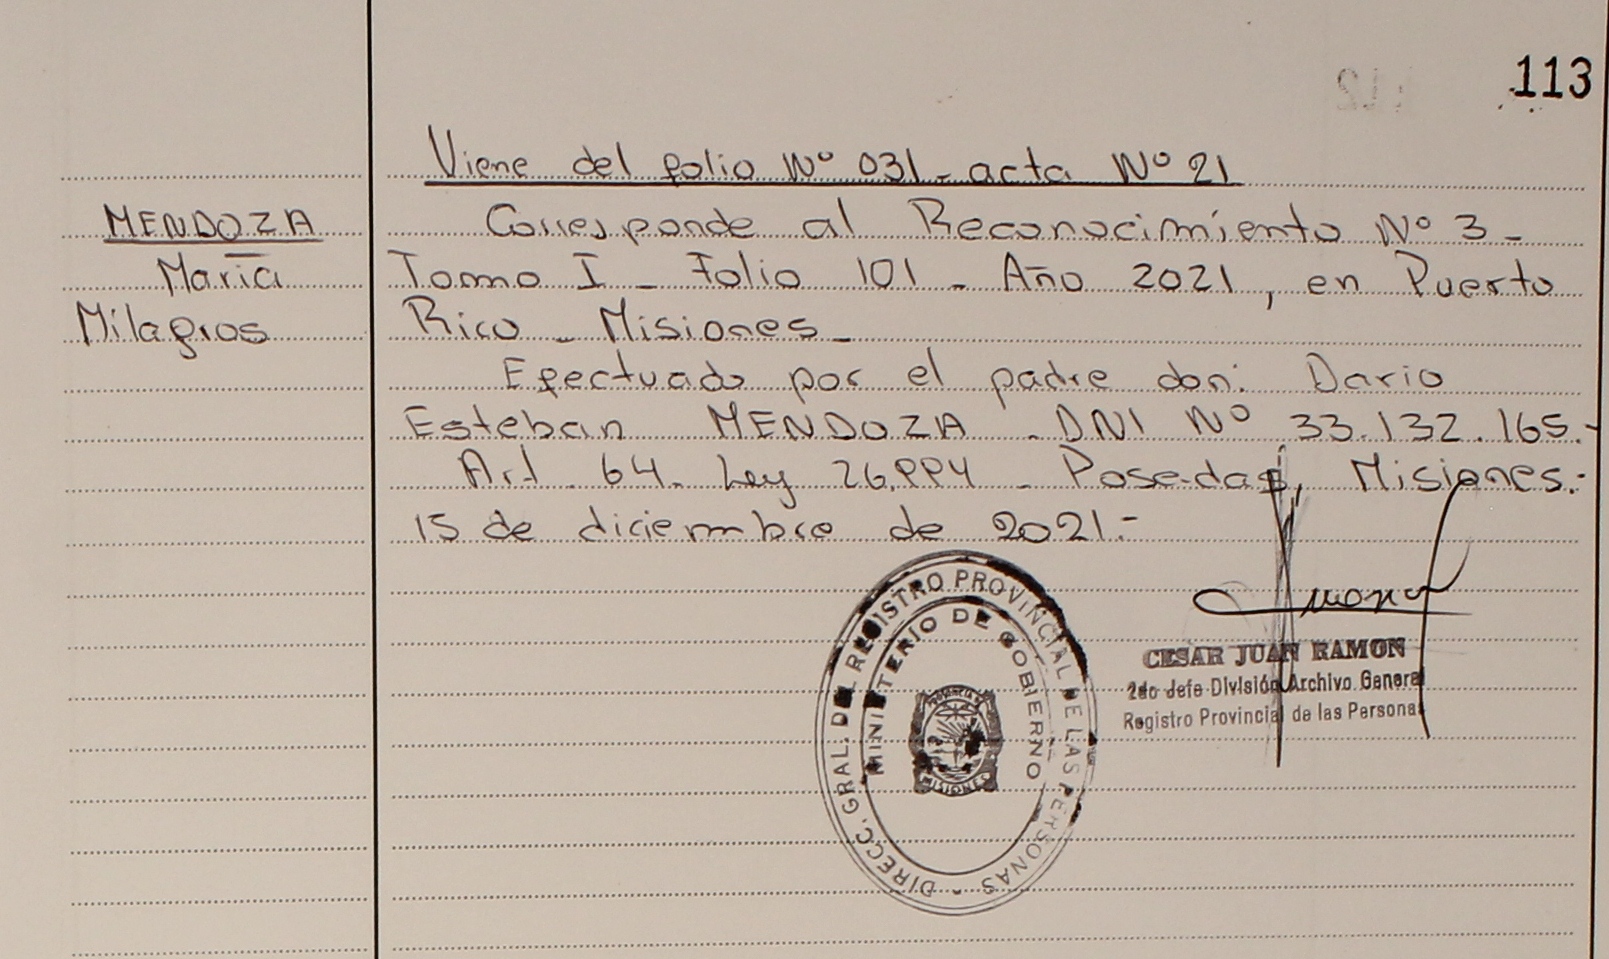 113
Viene del folio Nº 031 - acta Nº 21
MENDOZA
María
Milagros
Corresponde al Reconocimiento Nº 3 -
Tomo I - Folio 101 - Año 2021, en Puerto
Rico - Misiones -
Efectuado por el padre don: Dario
Esteban MENDOZA - DNI Nº 33.132.165.-
Art. 64. Ley 26.994 - Posadas, Misiones.-
15 de diciembre de 2021.-
DIRECC. GRAL. DEL REGISTRO PROVINCIAL DE LAS PERSONAS -
MINISTERIO DE GOBIERNO
PROVINCIA DE
MISIONES
CESAR JUAN RAMON
2do Jefe División Archivo General
Registro Provincial de las Personas